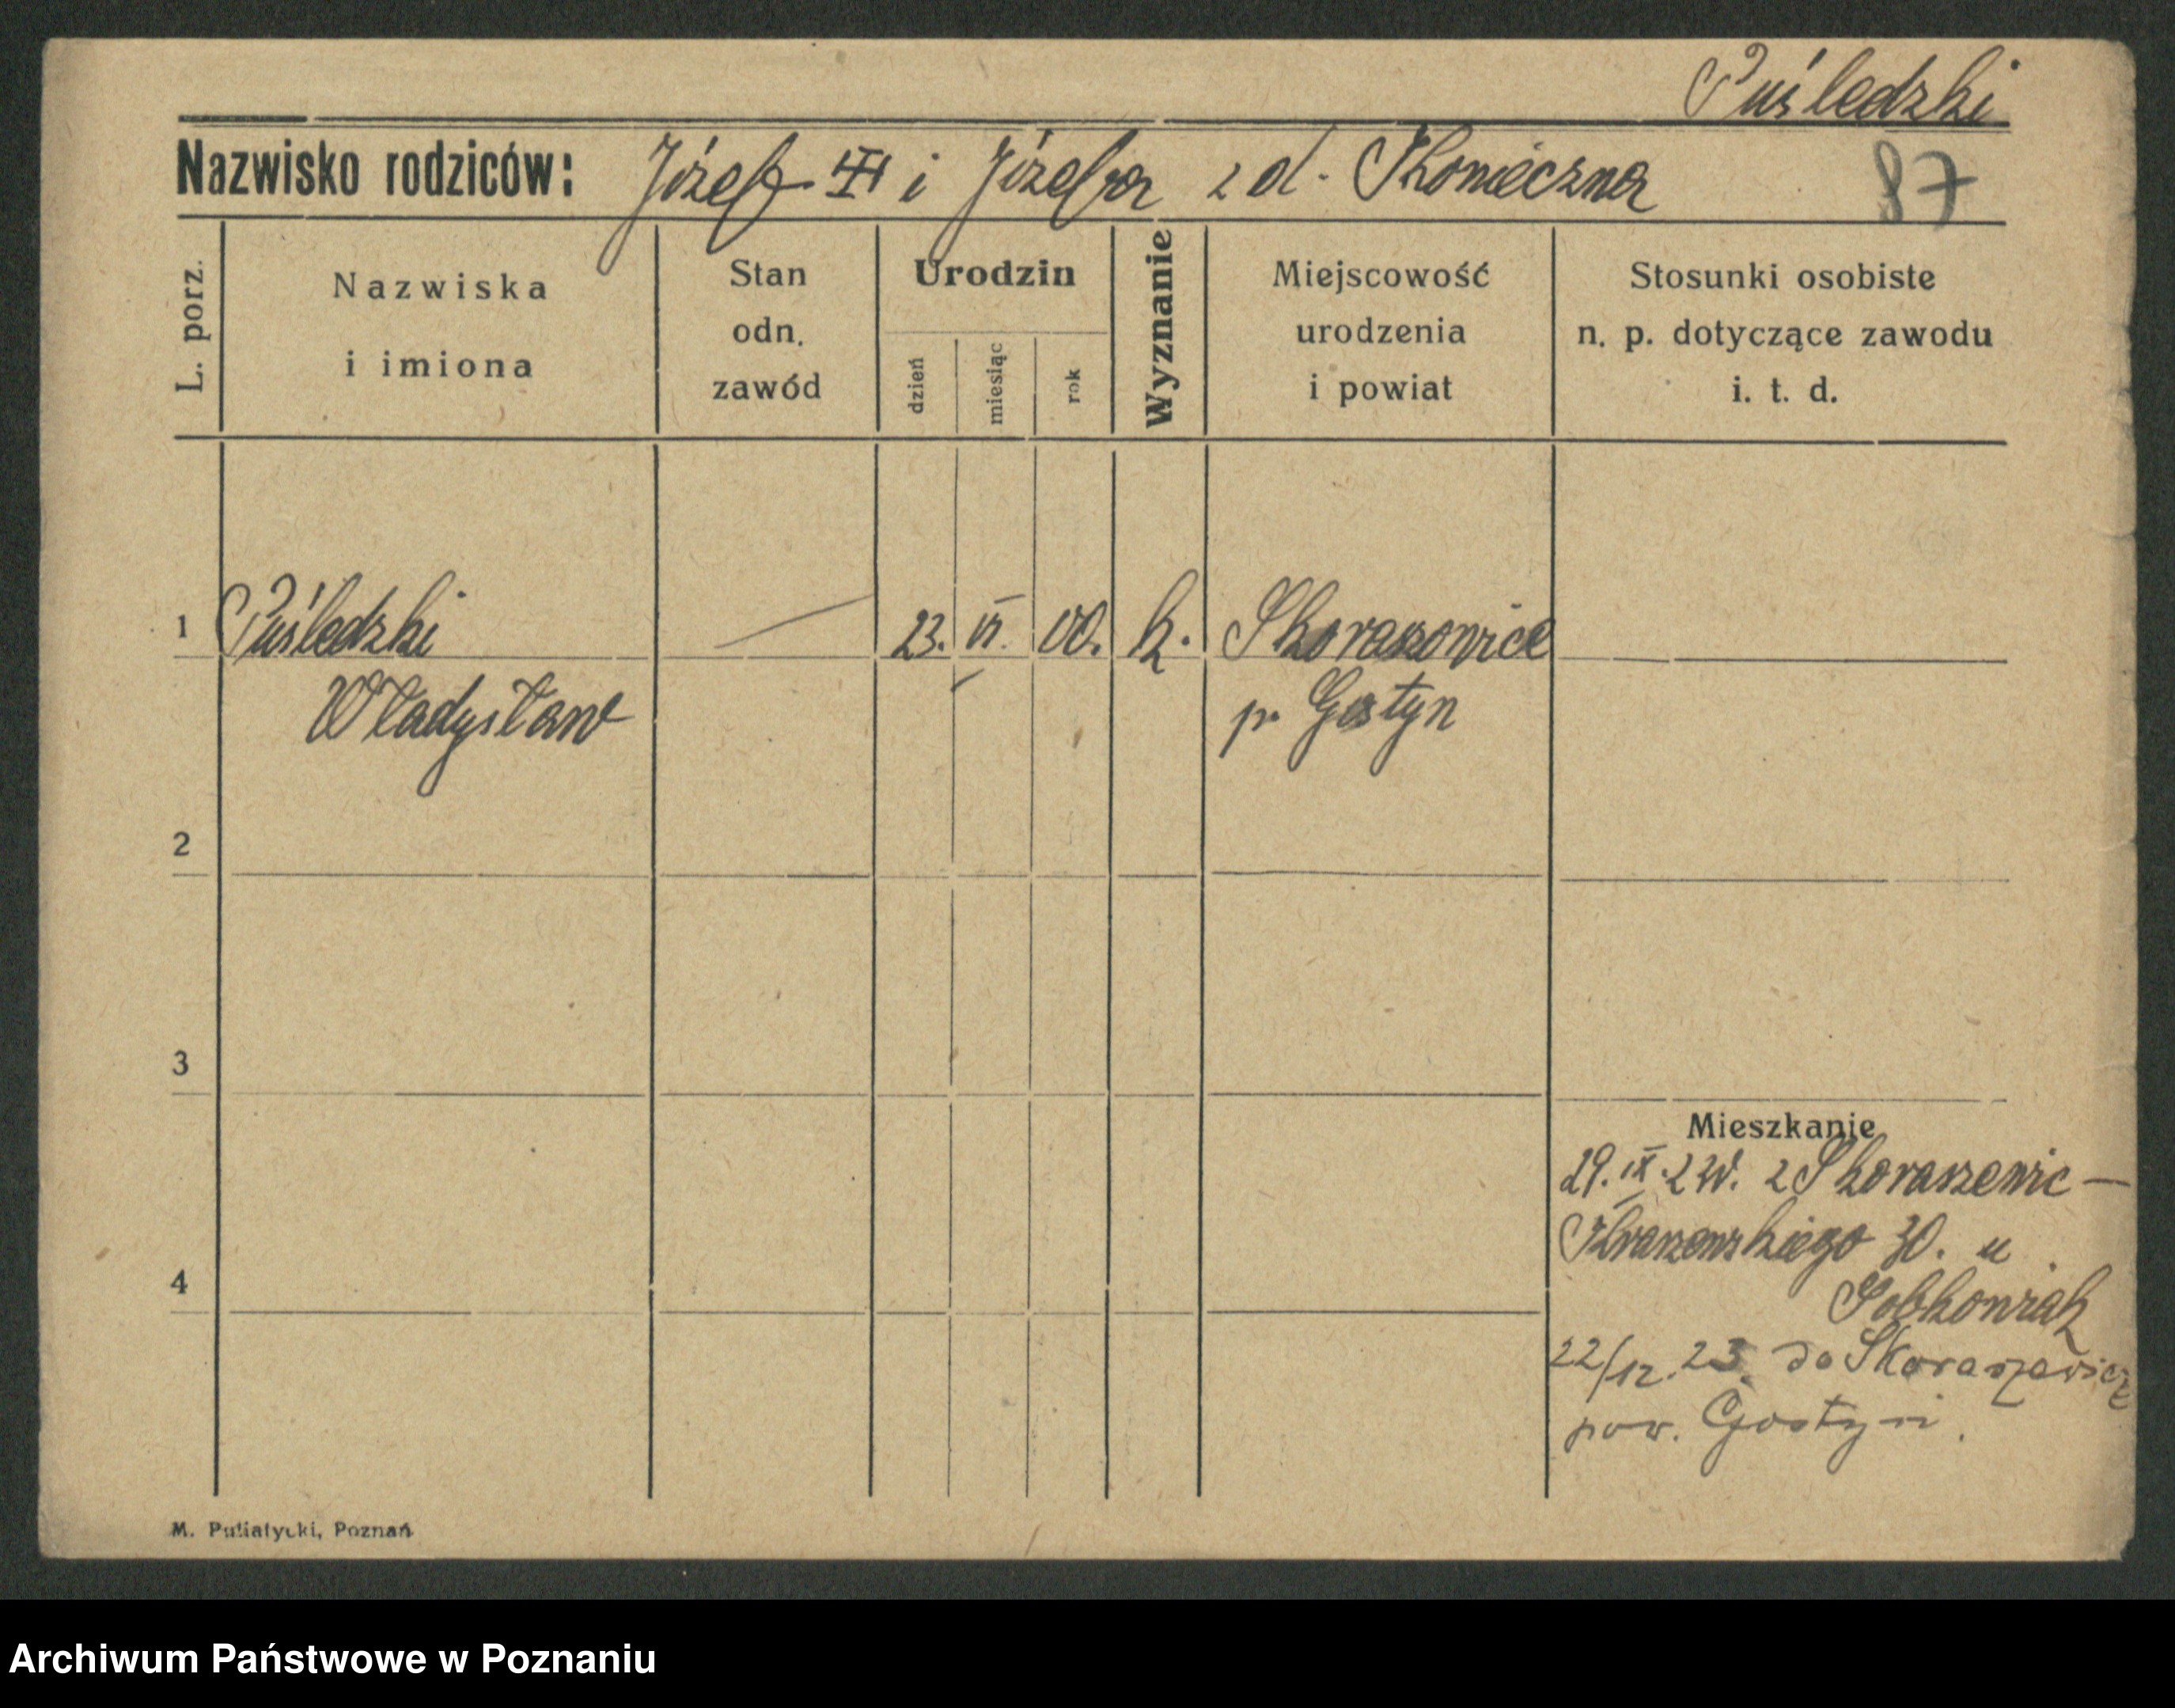 Puśledzki
Nazwisko rodziców: Józef i Józefa z d. Konieczna
87
L. porz.
Nazwiska i imiona
Stan odn. zawód
Urodzin
dzień
miesiąc
rok
Wyznanie
Miejscowość urodzenia i powiat
Stosunki osobiste n. p. dotyczące zawodu i. t. d.
1 Puśledzki — 23. VI. 00. k. Skoraszowice
Władysław p. Gostyn
2
3
Mieszkanie
29. IX. z Skoraszewic —
Kraszewskiego 30. u
4
Sobkowiak
22/12. 23. do Skoraszewic
pow. Gostyń.
M. Putiatycki, Poznań
Archiwum Państwowe w Poznaniu